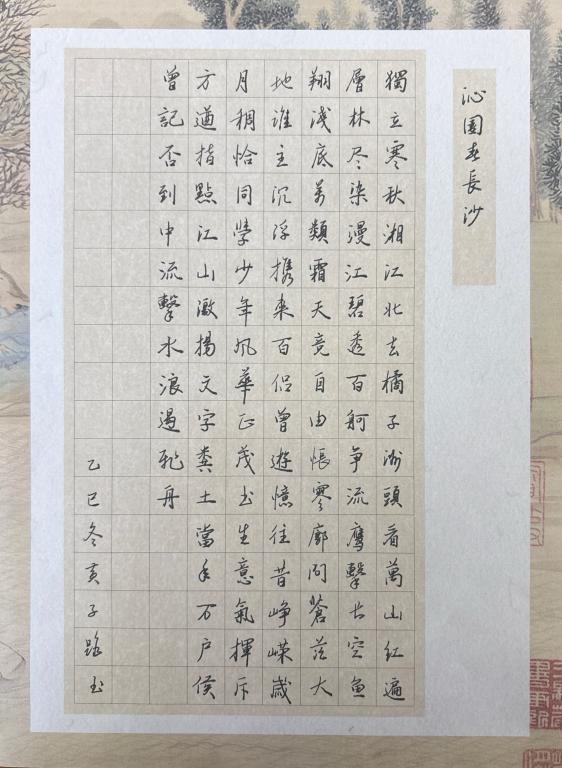 沁園春長沙
獨立寒秋湘江北去橘子洲頭看萬山紅遍
層林尽染漫江碧透百舸争流鹰擊长空鱼
翔淺底萬類霜天竞自由悵寥廓问蒼茫大
地谁主沉浮携来百侣曾遊憶往昔峥嵘歲
月稠恰同學少年风華正茂书生意氣揮斥
方遒指點江山激揚文字粪土當年万户侯
曾記否到中流擊水浪遏飛舟
乙巳冬黄子路书